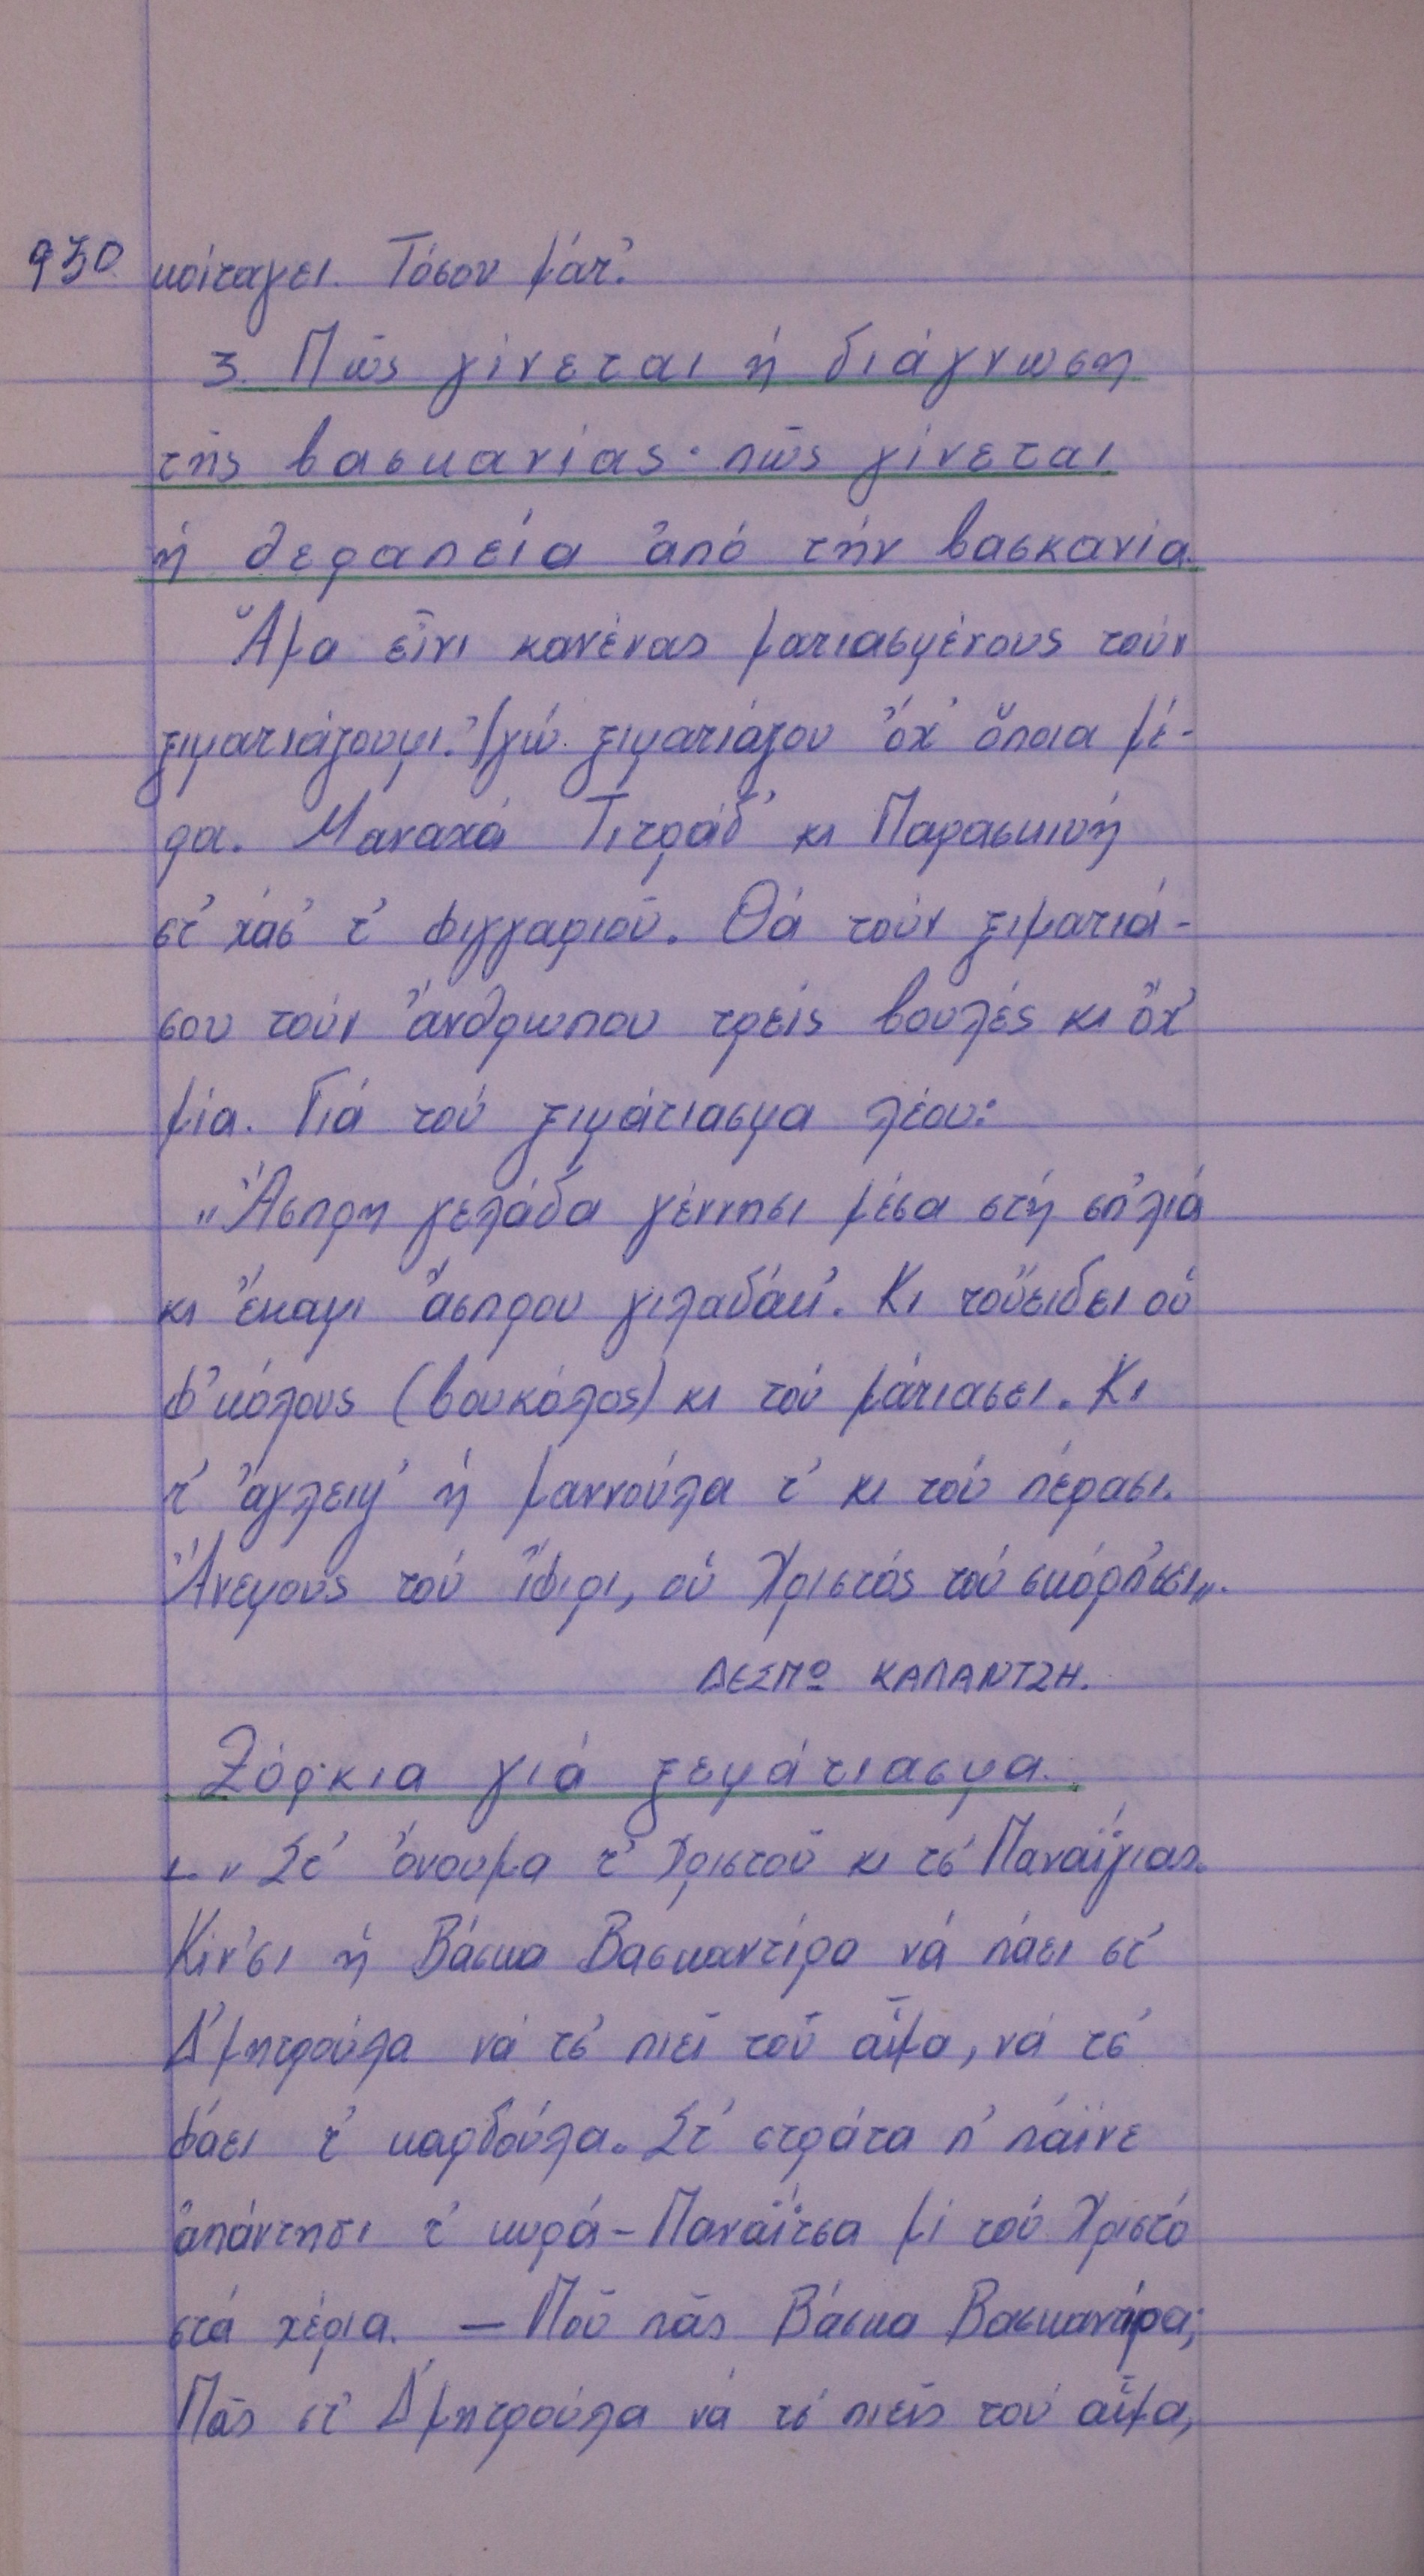 930 κοίταγει. Τόσου μάτ'.
3. Πῶς γίνεται ἡ διάγνωση
τῆς βασκανίας· πῶς γίνεται
ἡ θεραπεία ἀπό τήν βασκανία.
Ἅμα εἶνι κανένας ματιασμένους τούν
ξιματιάζουμι. Ἰγώ ξιματιάζου ὄχ' ὅποια μέ-
ρα. Μαναχά Τιτράδ' κι Παρασκιυή
στ' χάσ' τ' φιγγαριοῦ. Θά τούν ξιματιά-
σου τούν ἄνθρωπου τρεῖς βουλές κι ὄχ'
μία. Γιά τού ξιμάτιασμα λέου:
„Ἄσπρη γελάδα γέννησι μέσα στή σπ'λιά
κι ἔκαμι ἄσπρου γιλαδάκ'. Κι τοὔειδει οὑ
φ'κόλους (βουκόλος) κι τού μάτιασει. Κι
τ' ἄγλειψ' ἡ μαννούλα τ' κι τού πέρασι.
Ἄνεμους τού ἴφιρι, οὑ Χριστός τού σκόρπ'σει„.
ΔΕΣΠΩ ΚΑΛΑΝΤΖΗ.
Ξόρκια γιά ξεμάτιασμα.
1. „ Στ' ὄνουμα τ' Χριστοῦ κι τσ' Παναΐγιας.
Κίν'σι ἡ Βάσκα Βασκαντίρα νά πάει στ'
Δ'μητρούλα νά τσ' πιεῖ τοῦ αἷμα, νά τσ'
φάει τ' καρδούλα. Στ' στράτα π' πάϊνε
ἀπάντησι τ' κυρά-Παναΐτσα μί τού Χριστό
στά χέρια. – Ποῦ πᾶς Βάσκα Βασκαντίρα;
Πᾶς στ' Δ'μητρούλα νά τσ' πιεῖς τού αἷμα,